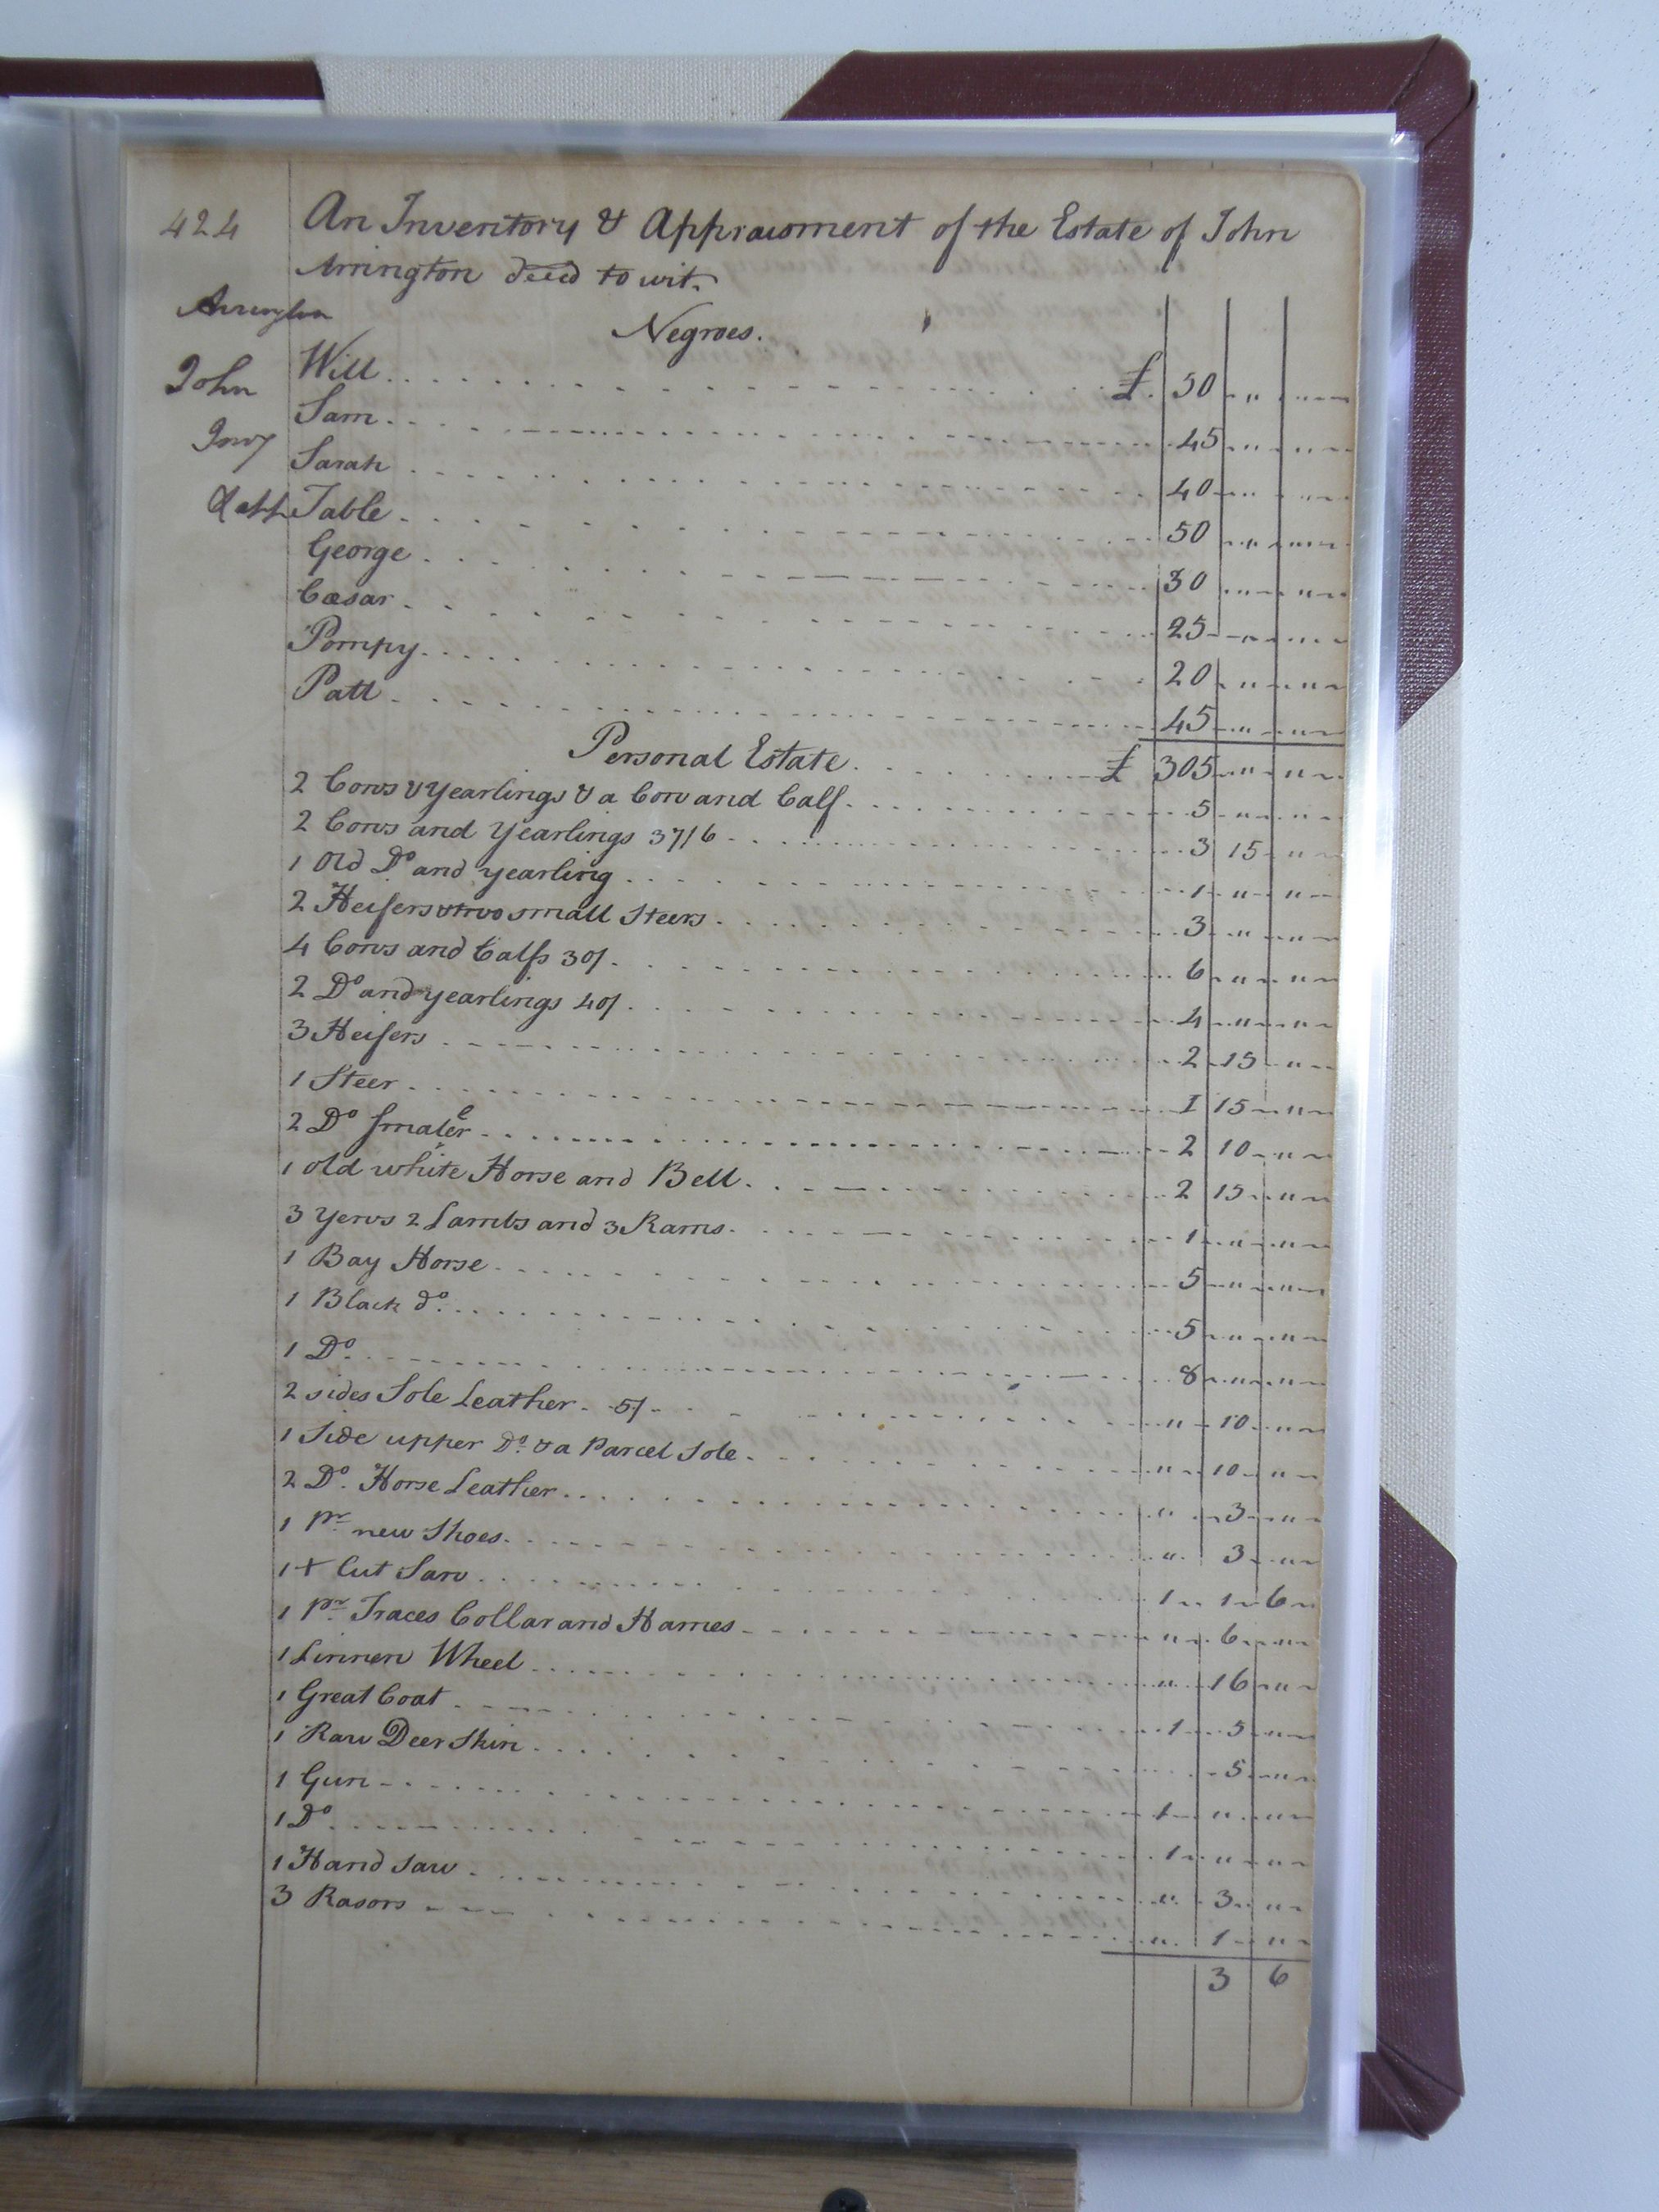 424
An Inventory & Appraisment of the Estate of John
Arrington Decd to wit.
Arrington
John
Invy
& app
Negroes.
Will £. 50 " "
Sam 45 " "
Sarah 40 " "
Table 50 " "
George 30 " "
Cæsar 25 " "
Pompy 20 " "
Patt 45 " "
Personal Estate £ 305 " "
2 Cows & Yearlings & a Cow and Calf 5 " "
2 Cows and Yearlings 37/6 3 15 "
1 Old Do and yearling 1 " "
2 Heifers & two small Steers 3 " "
4 Cows and Calfs 30/ 6 " "
2 Do and yearlings 40/ 4 " "
3 Heifers 2 15 "
1 Steer 1 15 "
2 Do smaler 2 10 "
1 old white Horse and Bell 2 15 "
3 Yews 2 Lambs and 3 Rams 1 " "
1 Bay Horse 5 " "
1 Black do. 5 " "
1 Do. 8 " "
2 sides Sole Leather 5/ " 10 "
1 Side upper Do. & a Parcel Sole " 10 "
2 Do. Horse Leather " 3 "
1 pr. new Shoes " 3 "
1 + Cut Saw 1 1 6
1 pr. Traces Collar and Hames " 6 "
1 Linnen Wheel " 16 "
1 Great Coat 1 5 "
1 Raw Deer Skin 5 "
1 Gun 1 " "
1 Do 1 " "
1 Hand saw " 3 "
3 Rasors " 1 "
3 6